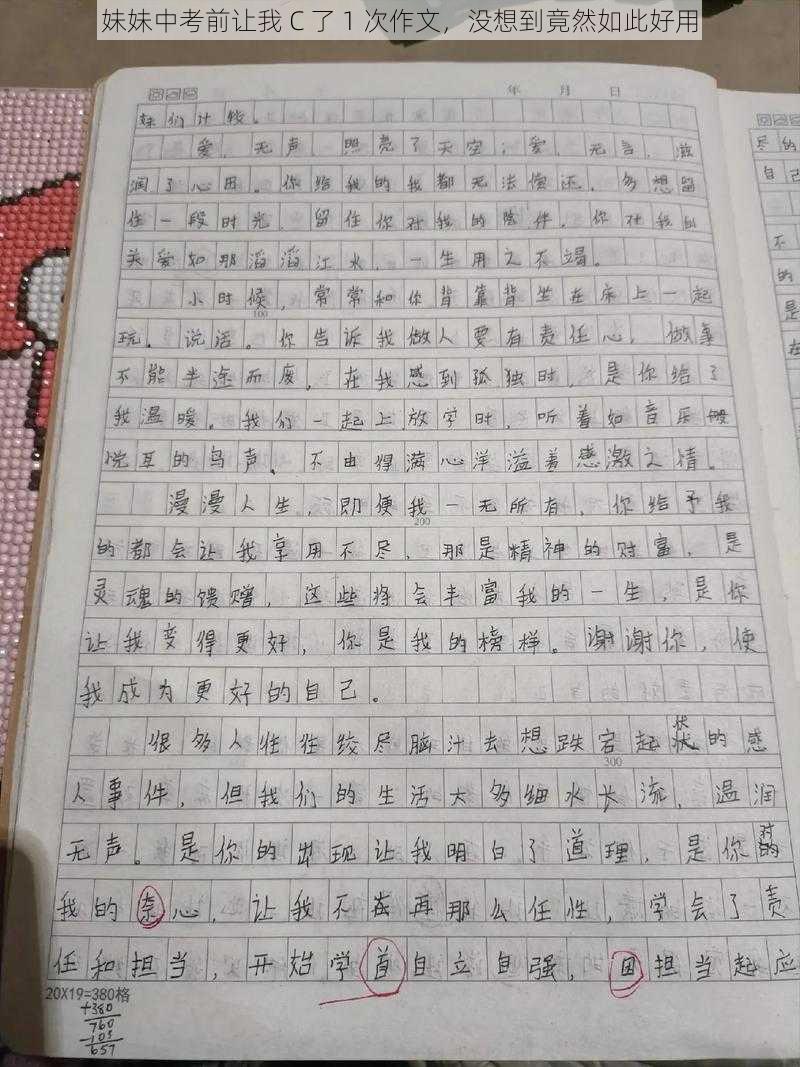 妹妹中考前让我 C 了 1 次作文，没想到竟然如此好用
年 月 日
妹们计较。
爱，无声，照亮了天空；爱，无言，滋
润了心田。你给我的我都无法偿还，多想留
住一段时光，留住你对我的陪伴。你对我的
关爱如那滔滔江水，一生用之不竭。
小时候，常常和你背靠背坐在床上一起
100
玩。说话。你告诉我做人要有责任心，做事
不能半途而废。在我感到孤独时，是你给了
我温暖。我们一起上放学时，听着如音乐般
悦耳的鸟声、不由得满心洋溢着感激之情。
漫漫人生，即便我一无所有，你给予我
200
的都会让我享用不尽，那是精神的财富，是
灵魂的馈赠，这些将会丰富我的一生，是你
让我变得更好，你是我的榜样。谢谢你，使
我成为更好的自己。
很多人往往绞尽脑汁去想跌宕起伏的感
300
人事件，但我们的生活大多细水长流，温润
无声。是你的出现让我明白了道理，是你对
我的心，让我不再那么任性，学会了责
任和担当，开始学着自立自强，担当起应
20X19=380格
+380
760
-103
657
尽的
自己
不
的
是
在